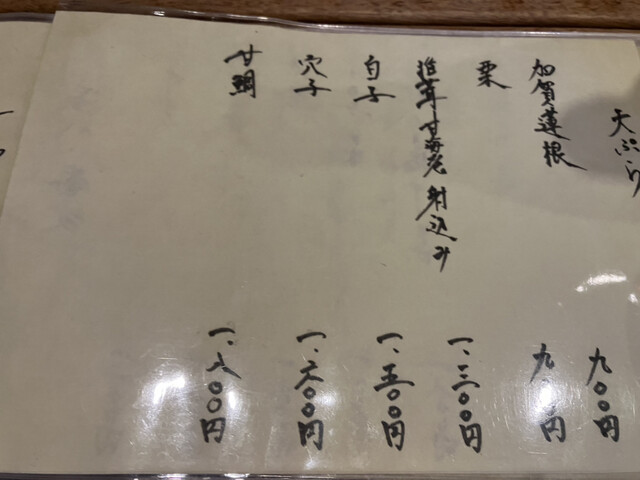 天ぷら
加賀蓮根 九〇〇円
栗 九〇〇円
椎茸甘海老射込み 一.二〇〇円
白子 一.五〇〇円
穴子 一.六〇〇円
甘鯛 一.八〇〇円